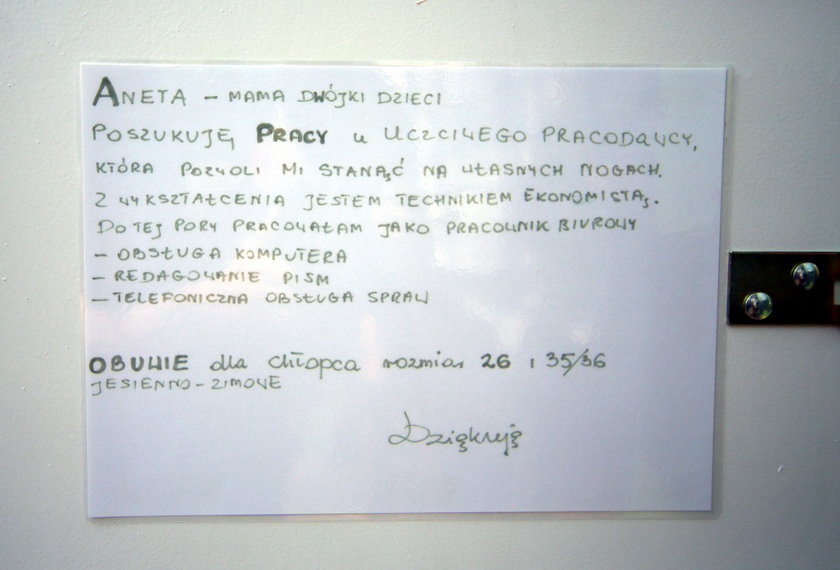 ANETA – MAMA DWÓJKI DZIECI
POSZUKUJĘ PRACY u UCZCIWEGO PRACODAWCY,
KTÓRA POZWOLI MI STANĄĆ NA WŁASNYCH NOGACH.
Z WYKSZTAŁCENIA JESTEM TECHNIKIEM EKONOMISTĄ.
DO TEJ PORY PRACOWAŁAM JAKO PRACOWNIK BIUROWY
– OBSŁUGA KOMPUTERA
– REDAGOWANIE PISM
– TELEFONICZNA OBSŁUGA SPRAW
OBUWIE dla chłopca rozmiar 26 i 35/36
JESIENNO-ZIMOWE
Dziękuję